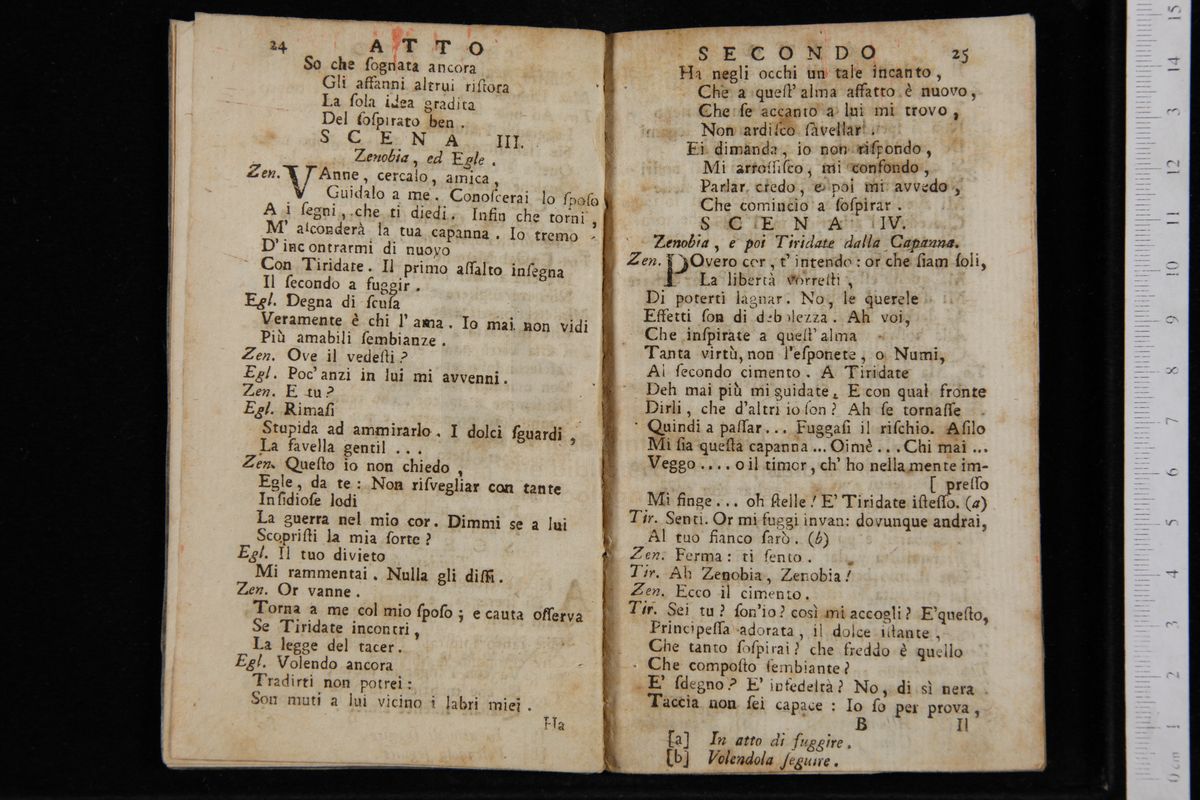 24 ATTO
So che ſognata ancora
Gli affanni altrui riſtora
La ſola idea gradita
Del ſoſpirato ben .
SCENA III.
Zenobia , ed Egle .
Zen. VAnne , cercalo , amica ,
Guidalo a me . Conoſcerai lo ſpoſo
A i ſegni , che ti diedi . Infin che torni ,
M' aſconderà la tua capanna . Io tremo
D' incontrarmi di nuovo
Con Tiridate . Il primo aſſalto inſegna
Il ſecondo a fuggir .
Egl. Degna di ſcuſa
Veramente è chi l' ama . Io mai non vidi
Più amabili ſembianze .
Zen. Ove il vedeſti ?
Egl. Poc' anzi in lui mi avvenni .
Zen. E tu ?
Egl. Rimaſi
Stupida ad ammirarlo . I dolci ſguardi ,
La favella gentil . . .
Zen. Queſto io non chiedo ,
Egle , da te : Non riſvegliar con tante
Inſidioſe lodi
La guerra nel mio cor . Dimmi se a lui
Scopriſti la mia ſorte ?
Egl. Il tuo divieto
Mi rammentai . Nulla gli diſſi .
Zen. Or vanne .
Torna a me col mio ſpoſo ; e cauta oſſerva
Se Tiridate incontri ,
La legge del tacer .
Egl. Volendo ancora
Tradirti non potrei :
Son muti a lui vicino i labri miei .
Ha
SECONDO 25
Ha negli occhi un tale incanto ,
Che a queſt' alma affatto è nuovo ,
Che ſe accanto a lui mi trovo ,
Non ardiſco favellar .
Ei dimanda , io non riſpondo ,
Mi arroſſiſco , mi confondo ,
Parlar credo , e poi mi avvedo ,
Che comincio a ſoſpirar .
SCENA IV.
Zenobia , e poi Tiridate dalla Capanna.
Zen. POvero cor , t' intendo : or che ſiam ſoli,
La libertà vorreſti ,
Di poterti lagnar . No , le querele
Effetti ſon di debolezza . Ah voi,
Che inſpirate a queſt' alma
Tanta virtù, non l'eſponete , o Numi,
Al ſecondo cimento . A Tiridate
Deh mai più mi guidate . E con qual fronte
Dirli , che d'altri io ſon ? Ah ſe tornaſſe
Quindi a paſſar . . . Fuggaſi il riſchio . Aſilo
Mi ſia queſta capanna ... Oimè . . . Chi mai ...
Veggo .... o il timor , ch' ho nella mente im-
[ preſſo
Mi finge . . . oh ſtelle ! E' Tiridate iſteſſo. (a)
Tir. Senti . Or mi fuggi invan: dovunque andrai,
Al tuo fianco ſarò . (b)
Zen. Ferma : ti ſento .
Tir. Ah Zenobia , Zenobia !
Zen. Ecco il cimento .
Tir. Sei tu ? ſon'io ? così mi accogli ? E'queſto,
Principeſſa adorata , il dolce iſtante ,
Che tanto ſoſpirai ? che freddo è quello
Che compoſto ſembiante ?
E' ſdegno ? E' infedeltà ? No , di sì nera
Taccia non ſei capace : Io ſo per prova ,
B Il
[a] In atto di fuggire .
[b] Volendola ſeguire .
0 cm 1 2 3 4 5 6 7 8 9 10 11 12 13 14 15